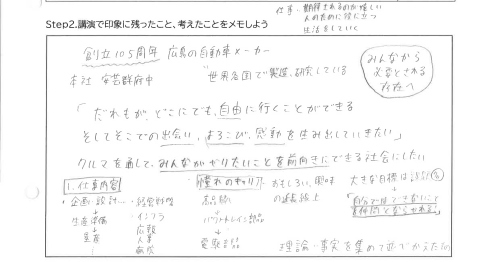 仕事・期待されるのが嬉しい
人のために役に立つ
生活をしていく
Step2.講演で印象に残ったこと、考えたことをメモしよう
創立105周年 広島の自動車メーカー
本社 安芸郡府中
世界各国で製造、研究している
みんなから
必要とされる
存在へ
「だれもが、どこにでも、自由に行くことができる
そしてそこでの出会い、よろこび、感動を生み出していきたい」
クルマを通して、みんながやりたいことを前向きにできる社会にしたい
1.仕事内容
・企画・設計…
↓
生産準備
↓
量産
・経営管理
・インフラ
広報
人事
憧れのキャリア
↓
↓
おもしろい、興味
の連続
大きな目標は
「自分ではできないこと
理論・事実を集めて